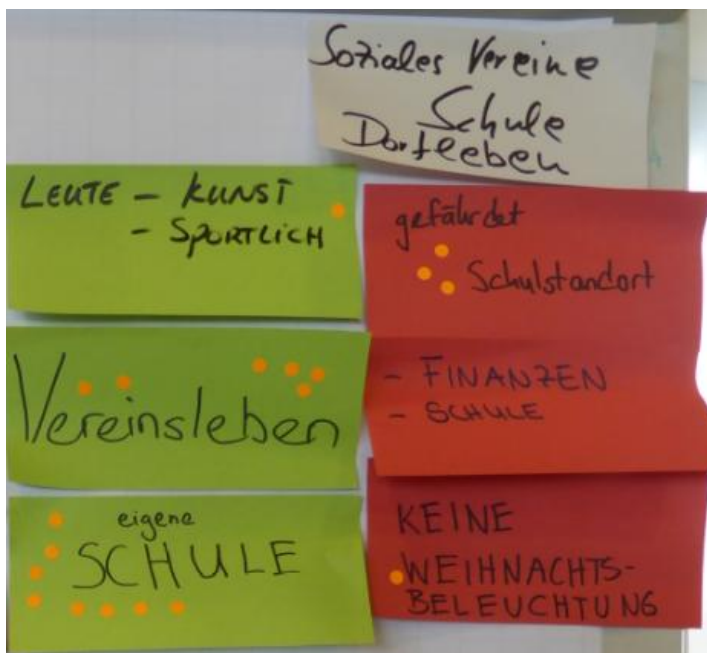 Soziales Vereine
Schule
Dorfleben
LEUTE - KUNST
- SPORTLICH
Vereinsleben
eigene
SCHULE
gefährdet
Schulstandort
- FINANZEN
- SCHULE
KEINE
WEIHNACHTS-
BELEUCHTUNG